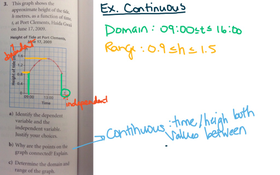 3. This graph shows the
approximate height of the tide,
h metres, as a function of time,
t, at Port Clements, Haida Gwaii
on June 17, 2009.
Height of Tide at Port Clements,
June 17, 2009
Time
independent
a) Identify the dependent
variable and the
independent variable.
Justify your choices.
b) Why are the points on the
graph connected? Explain.
c) Determine the domain and
range of the graph.
Ex. Continuous
Domain: 09:00≤t≤16:00
Range: 0.9≤h≤1.5
Continuous: time/heigh both
values between